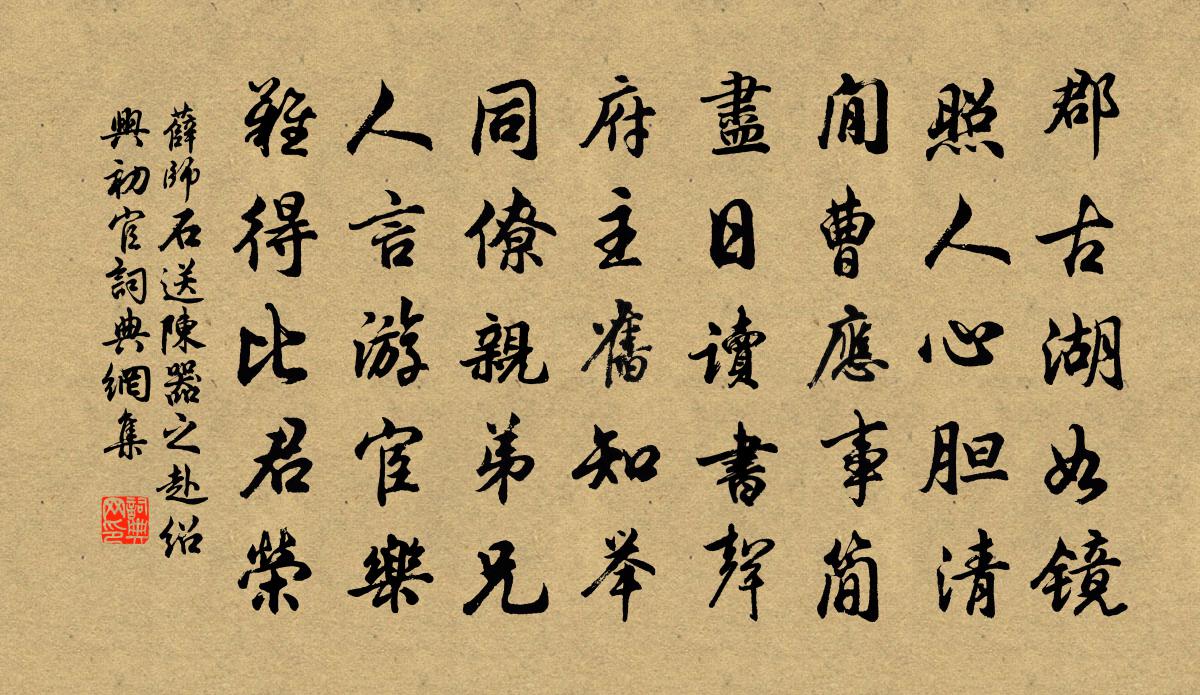 郡古湖如镜
照人心胆清
閒曹應事简
盡日讀書聲
府主舊知举
同僚親弟兄
人言游宦樂
難得比君榮
薛師石送陳器之赴绍
興初官詞典網集
詞典网印